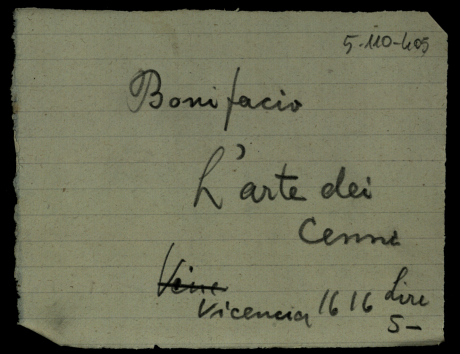 5-110-405
Bonifacio
L'arte dei
Cenni
Vicencia 1616 Lire
5-